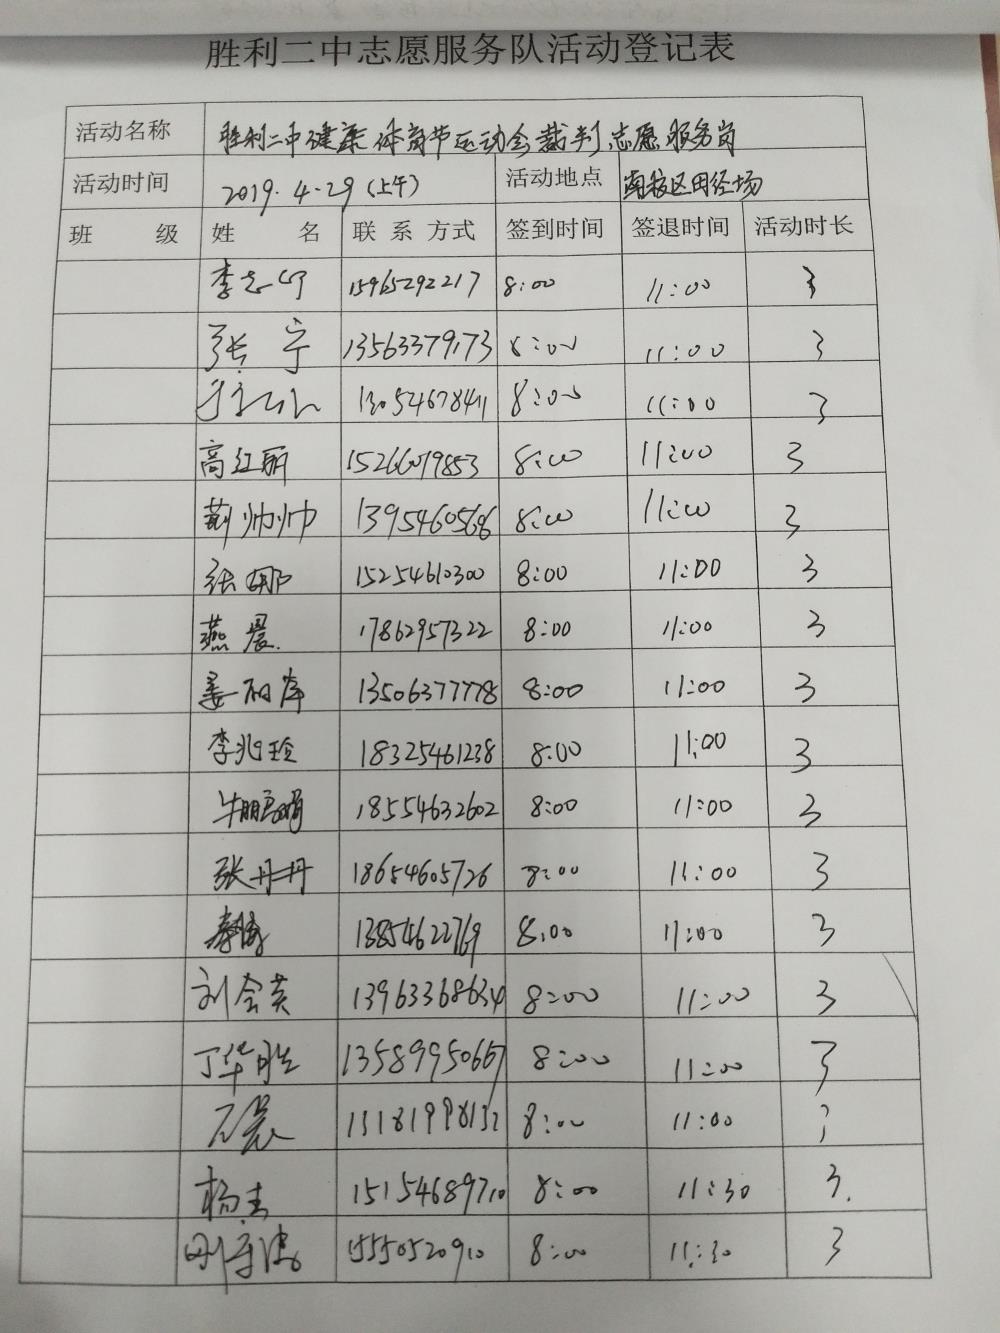 胜利二中志愿服务队活动登记表
活动名称 胜利二中健康体育节运动会裁判志愿服务岗
活动时间 2019.4.29(上午) 活动地点 南校区田径场
班 级 姓 名 联 系 方式 签到时间 签退时间 活动时长
李志宁 15965292217 8:00 11:00 3
张宁 13563379173 8:00 11:00 3
13054678411 8:00 11:00 3
高红丽 15266079853 8:00 11:00 3
荆帅帅 13954605686 8:00 11:00 3
张娜 15254610300 8:00 11:00 3
燕晨 17862957322 8:00 11:00 3
姜 13506377778 8:00 11:00 3
李兆玲 18325461238 8:00 11:00 3
牛朋 18554632602 8:00 11:00 3
张丹丹 18654605726 8:00 11:00 3
13854622769 8:00 11:00 3
刘会英 13963368634 8:00 11:00 3
丁华胜 13589950667 8:00 11:00 3
石晨 13181998132 8:00 11:00 3
杨杰 15154689710 8:00 11:30 3.
15550520910 8:00 11:30 3